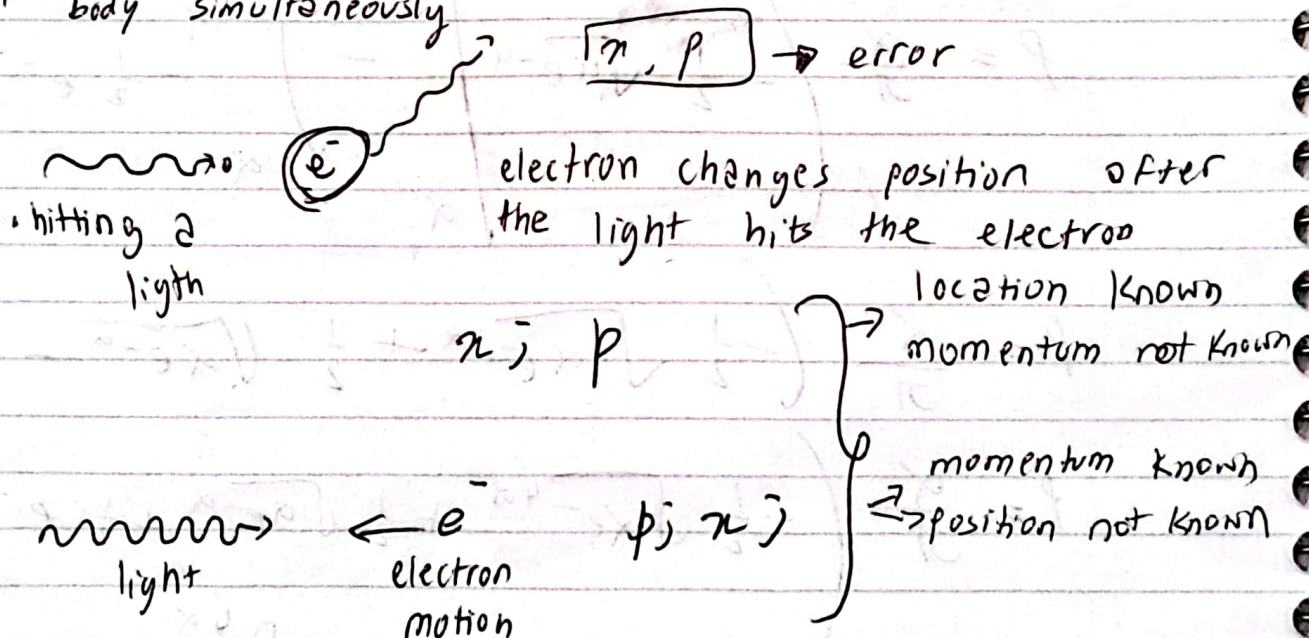 body simultaneously
x, p → error
e⁻
electron changes position after
the light hits the electron
. hitting a
ligth
location known
x; p
momentum not known
momentum known
e⁻ p; x;
position not known
light
electron
motion